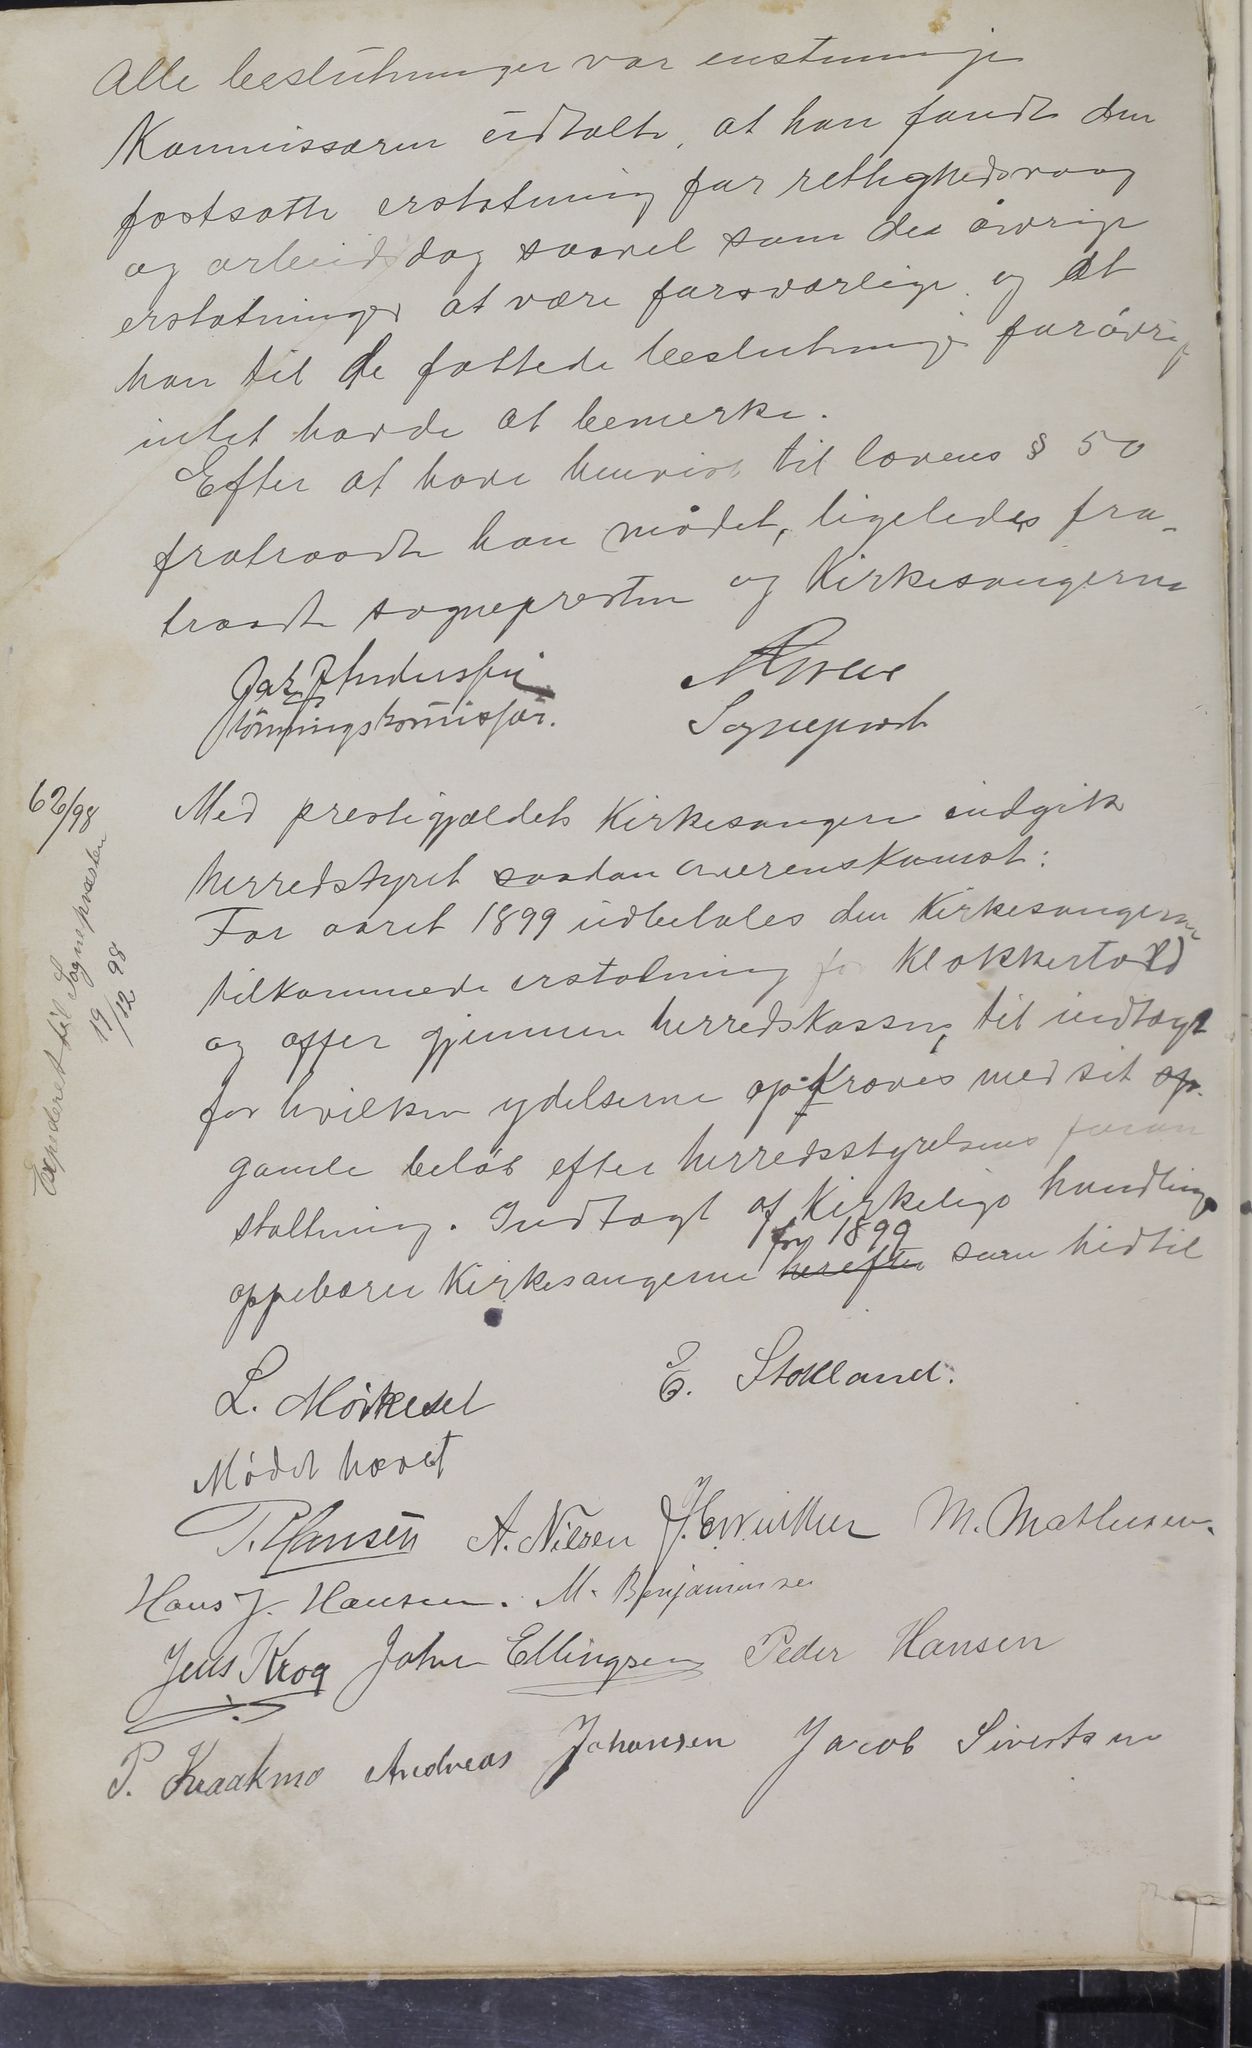 Alle beslutninger var enstemmige
Kommissæren udtalte, at han fandt den
fastsatte erstatning for rettighedsvaag
og arbeidsdag saavel som de øvrige
erstatninger at være forsvarlige og at
han til de fattede beslutninger forøvrig
intet havde at bemerke.
Efter at have henvist til lovens § 50
fratraadte han mødet, ligeledes fra-
traadte sognepresten og Kirkesangerne
Lønningskommissær.
Sogneprest
62/98
Expederet til Sognepræsten
19/12 98
Med prestegjældets Kirkesangere indgik
herredstyret saadan overenskomst:
For aaret 1899 udbetales den Kirkesangerne
tilkommede erstatning for Klokkertold
og offer gjennem herredskassen, til indtægt
for hvilken ydelserne opkræves med sit op.
gamle beløb efter herredsstyrelsens foran
staltning. Indtægt af Kirkelige handlinger
for 1899
oppebærer Kirkesangerne herefter som hidtil
L. Mørkesel E. Stokland.
Mødet hævet
P. Hansen A. Nilsen J. E. Winther M. Mathesen.
Hans J. Hansen. M. Benjaminsen
Jens Krog Johan Ellingsen Peder Hansen
P. Kraakmo Andreas Johansen Jacob Sivertsen